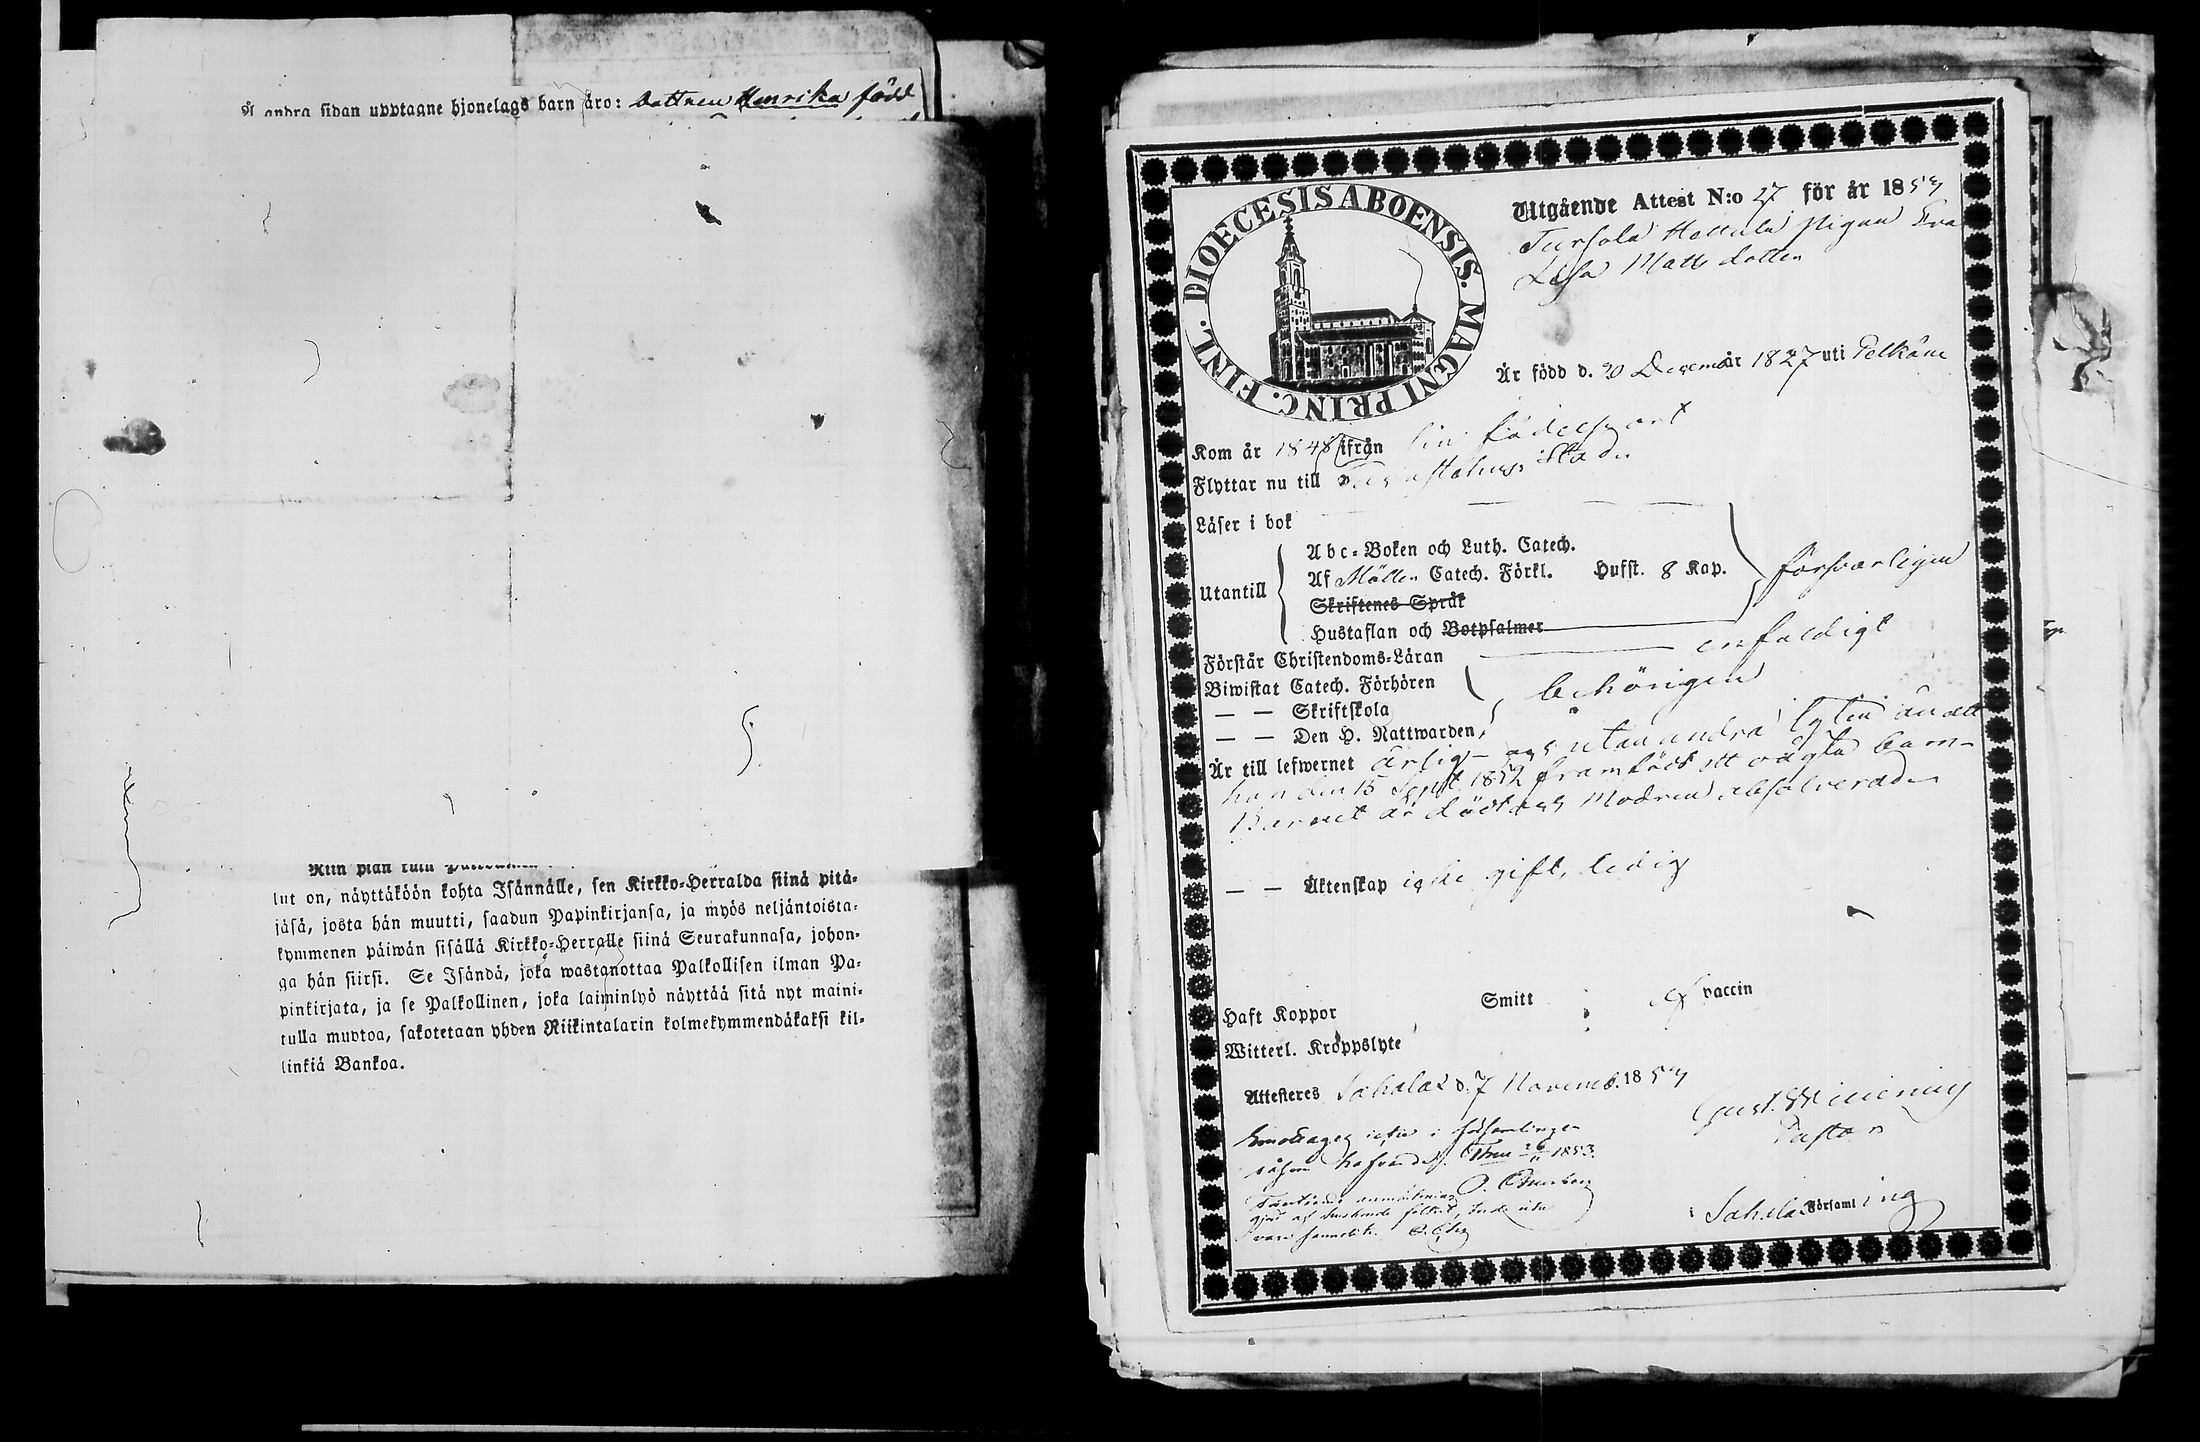 Å andra sidan upptagne hjonelags barn äro: Dottren Henrika född
lut on, näyttäköön kohta Isännälle, sen Kirkko-Herralda siinä pitä-
jäsä, josta hän muutti, saadun Papinkirjansa, ja myös neljäntoista-
kymmenen päiwän sisällä Kirkko-Herralle siinä Seurakunnasa, johon-
ga hän siirsi. Se Isändä, joka wastanottaa Palkollisen ilman Pa-
pinkirjata, ja se Palkollinen, joka laiminlyö näyttää sitä nyt maini-
tulla muotoa, sakotetaan yhden Riikintalarin kolmekymmendäkaksi kil-
linkiä Bankoa.
DIOECESIS ABOENSIS. MAGNI PRINC. FINL.
Utgående Attest N:o 27 för år 1853
Pigan Eva
Lisa Matts dotter
Är född d. 20 Decemb år 1827 uti Pelkäne
Kom år 1848 ifrån sin födelseort
Flyttar nu till Tavastehus Stad
Läser i bok
Utantill
Abc-Boken och Luth. Catech.
Af Möllers Catech. Förkl. Husst. 8 Kap. försvarligen
Skriftenes Språk
Hustaflan och Botpsalmer
Förstår Christendoms-Läran enfaldigt
Biwistat Catech. Förhören
— — Skriftskola behörigen
— — Den H. Nattwarden
Är till lefwernet ärlig och utan andra lyten än att
hon den 15 Sept. 1852 framfödt ett oägta barn
Barnet är dödt och Modren absolverad
— — Äktenskap icke gift, ledig
Haft Koppor Smitt af vaccin
Witterl. Kroppslyte
Attesteres Sahalax d. 7 Novemb. 1853
Gust. 
Pastor
i församlingen
1853.
Sahalax Församling